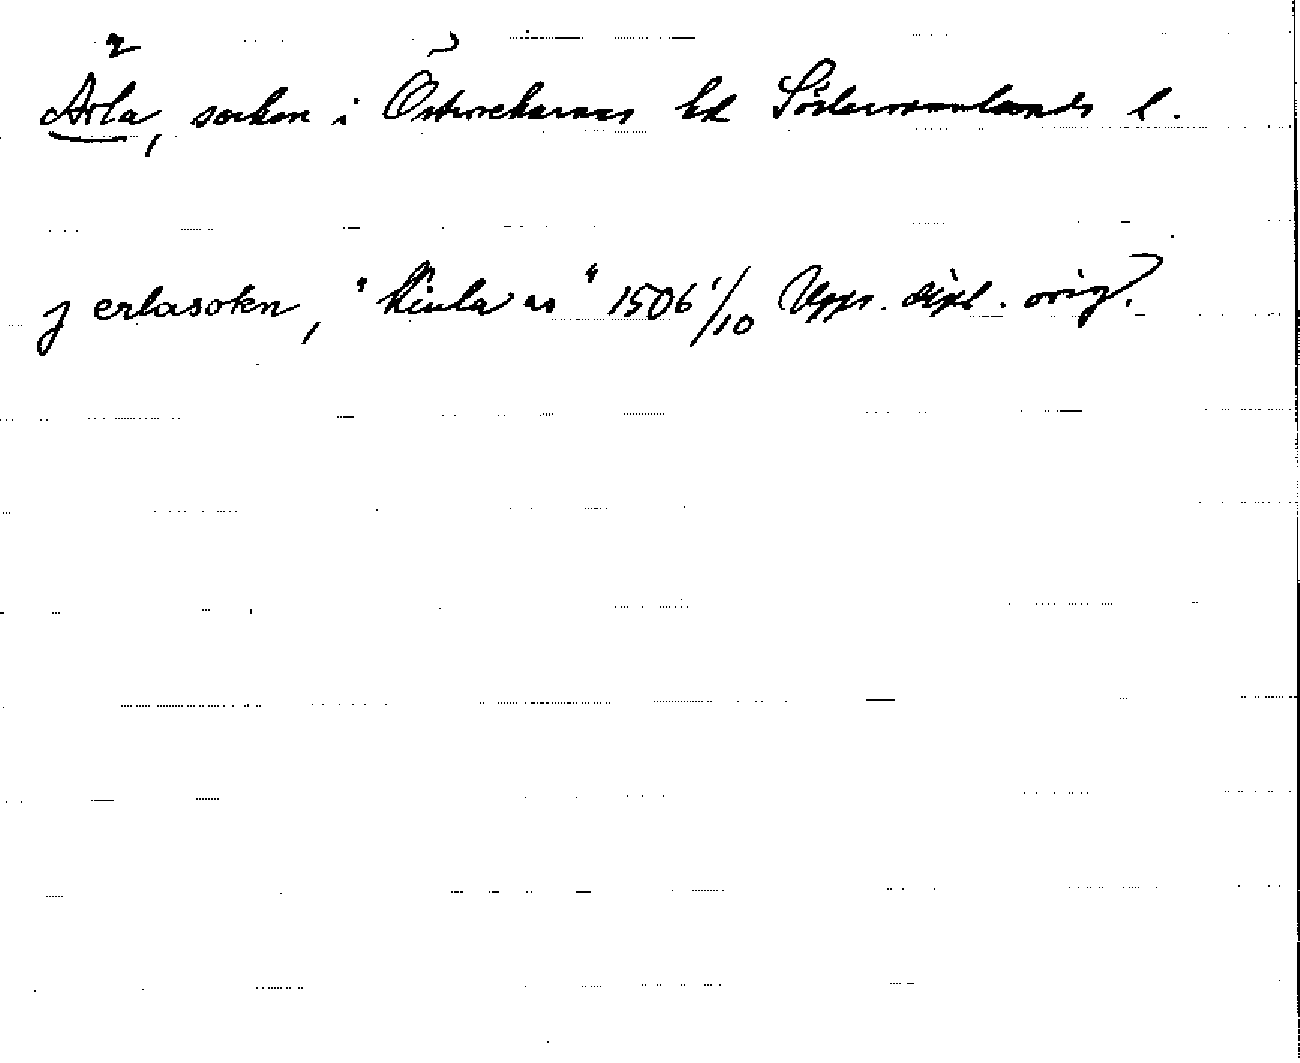 Ärla, socken i Österrekarnes hd Södermanlands l.
j erlasokn, " 1506 1/10 Upps. dipl. orig.